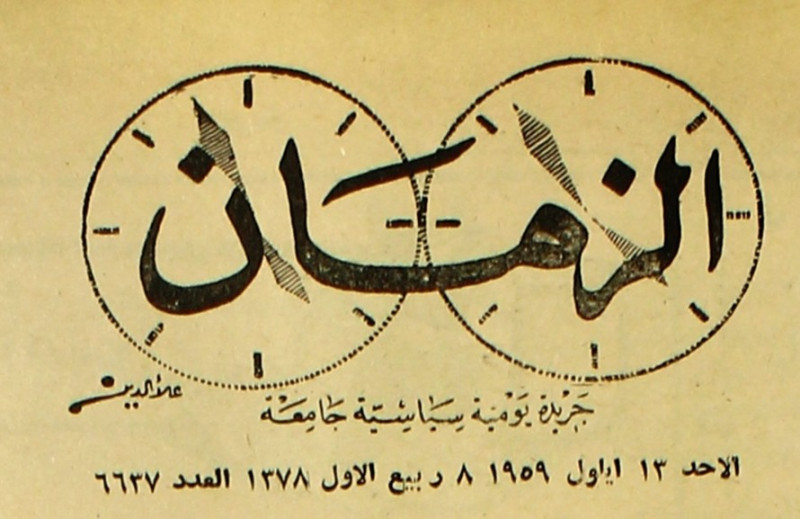 الزمان
علاء الدين
جَرِيْدَة يَوْمِيَة سِيَاسِيَّة جَامِعَة
الاحد ١٣ ايلول ١٩٥٩ ٨ ربيع الاول ١٣٧٨ العدد ٦٦٣٧